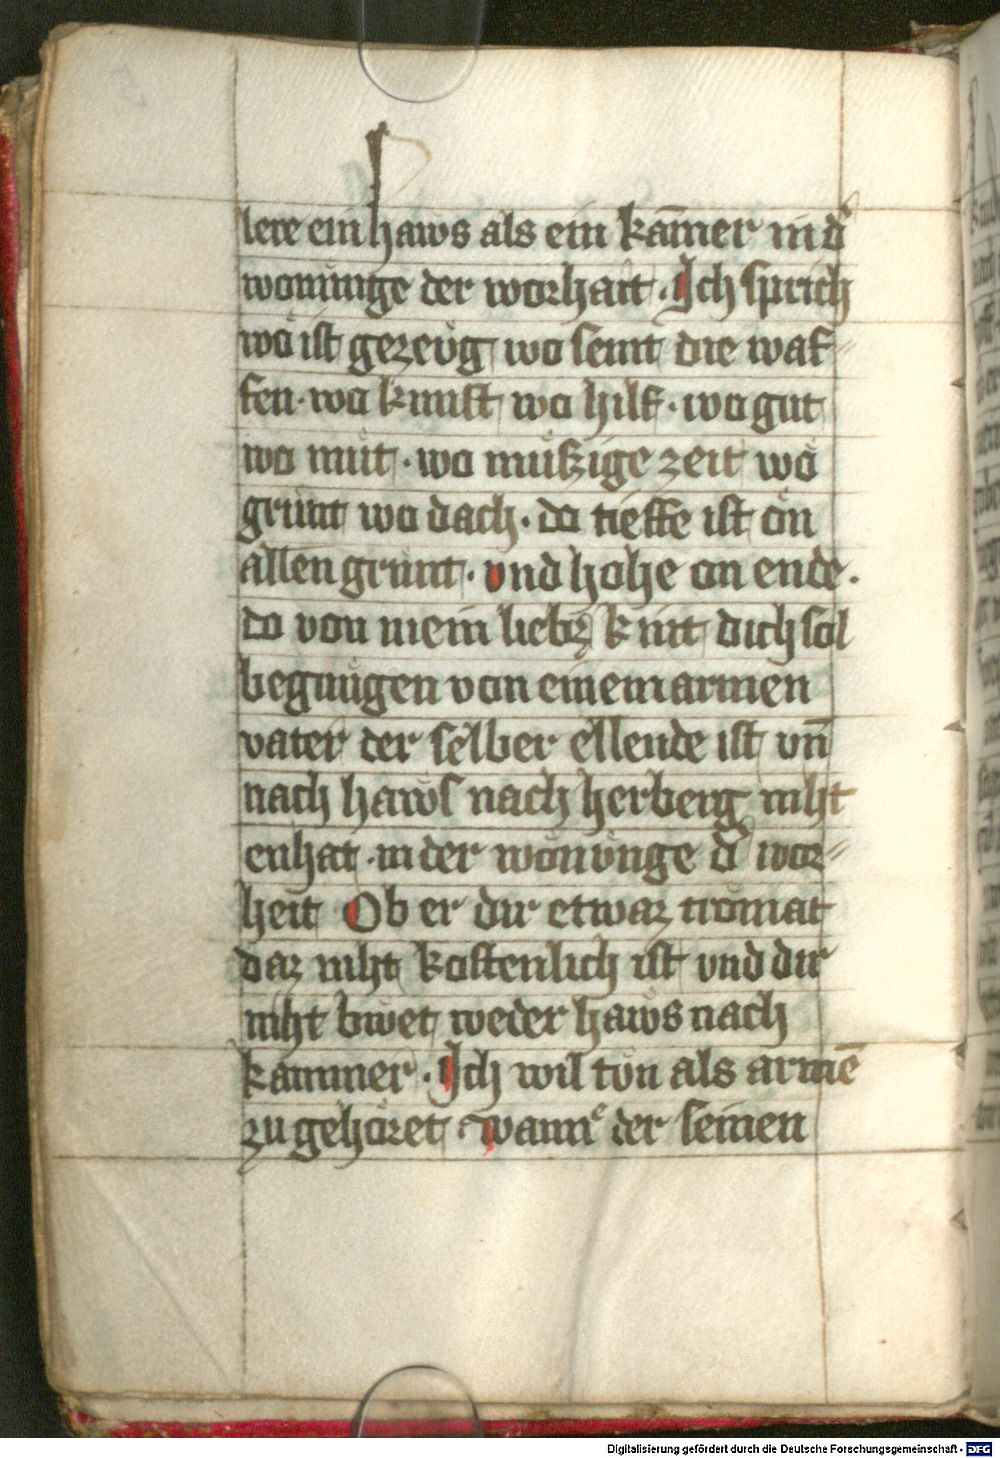 lere ein haws als ein kam̄er in d̉
wonunge der worhait · Ich sprich
wo ist gezeug wo seint die waf⸗
fen · wo kunst wo hilf · wo gut
wo mut · wo muͤzige zeit wo
grunt wo dach · do tieffe ist on
allen grunt · vnd hohe on ende ·
do von mein liebz kint dich sol
begnuͤgen von einem armen
vater der selber ellende ist vn̄
nach haws nach herberg niht
enhat · in der wonunge d̉ wor⸗
heit Ob er dir etwaz tromat
daz niht kostenlich ist vnd dir
niht bwet weder haws nach
kammer · Ich wil ton als armē
zu gehoret · wannͤ der seinen
Digitalisierung gefördert durch die Deutsche Forschungsgemeinschaft - DFG